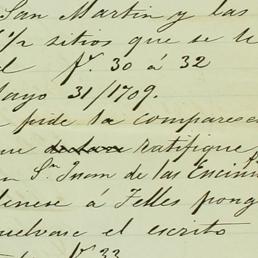 San Martin y las
1/2 sitios que se le
el fs. 30 á 32
Mayo 31/1709.
pide la comparesc
que declare ratifique
Sn Juan de las Encini
denese á Felles pong
uelvase el escrito
fs 33